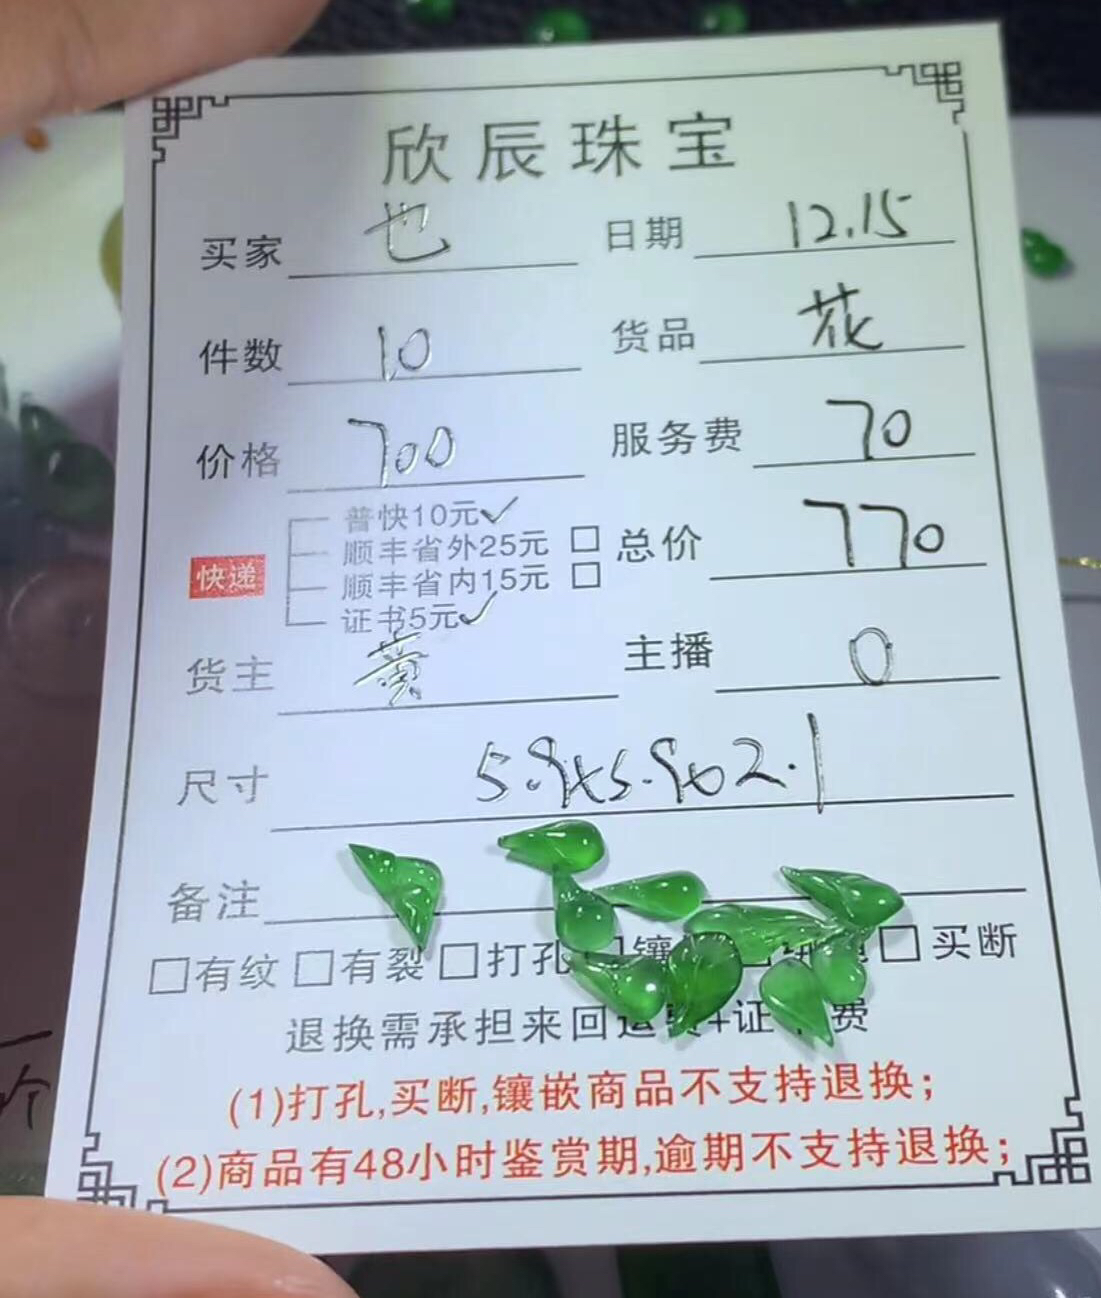 欣辰珠宝
买家 也 日期 12.15
件数 10 货品 花
价格 700 服务费 70
普快10元✓
顺丰省外25元 □ 总价 770
快递
顺丰省内15元 □
证书5元✓
货主 黄 主播 0
尺寸 5.9x5.9x2.1
备注
□有纹 □有裂 □打孔 镶 □买断
退换需承担来回运费+证 费
(1)打孔,买断,镶嵌商品不支持退换;
(2)商品有48小时鉴赏期,逾期不支持退换;